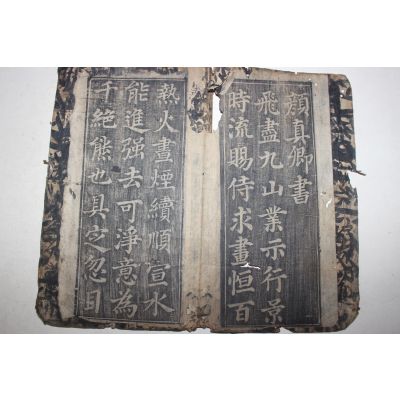 顏真卿書
飛盡九山業示行景
時流賜侍求畫恒百
熱火晝煙續順宣水
能進强去可淨意為
千絕熊也具定忽目